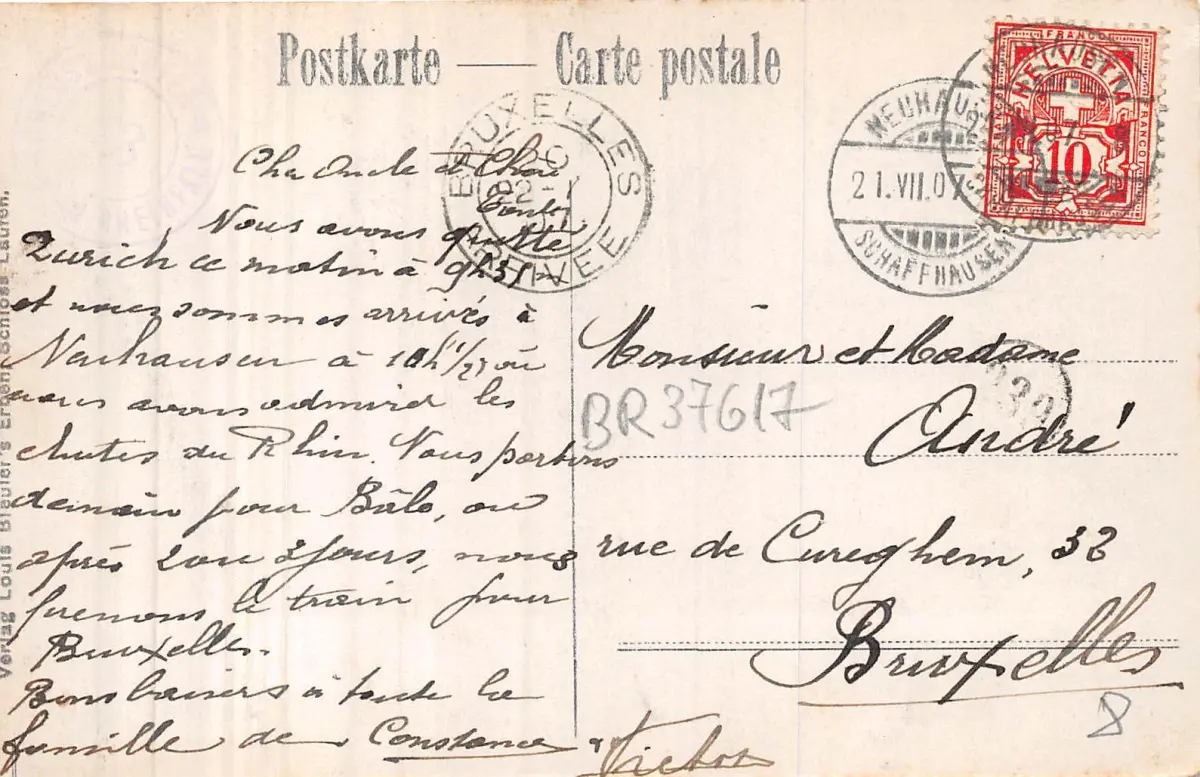 Postkarte — Carte postale
BRUXELLES
ARRIVÉE
NEUHAUSEN
21.VII.07
SCHAFFHAUSEN
FRANCO
HELVETIA
FRANCO
10
Oncle et
Tante
Nous avons quitté
Zurich ce matin à 9h31
et nous sommes arrivés à
Neuhausen à 10h 1/2 où
nous avons admiré les
chutes du Rhin. Nous partons
demain pour Bâle, où
après 2 ou 3 jours, nous
prenons le train pour
Bruxelles.
Bons baisers à toute la
famille de Constance
Victor
Monsieur et Madame
André
rue de Cureghem, 32
Bruxelles
BR37617
8
Verlag Louis Bleuler's Erben, Schloss Laufen.